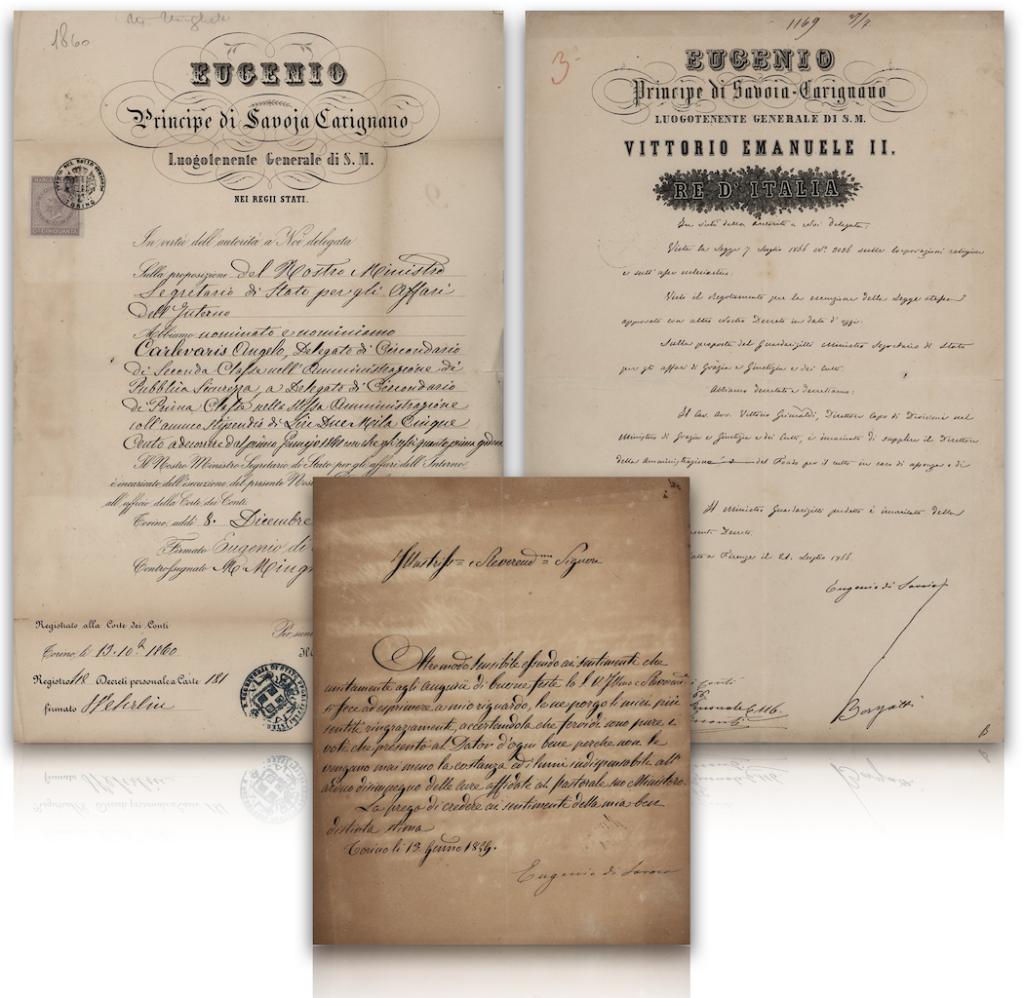 1860
EUGENIO
Principe di Savoja Carignano
Luogotenente Generale di S. M.
NEI REGII STATI.
In virtù dell'autorità a Noi delegata
Sulla proposizione del Nostro Ministro
Segretario di Stato per gli Affari
dell'Interno
Abbiamo nominato e nominiamo
Carlevaris Angelo, Delegato di Circondario
di Seconda Classe nell'Amministrazione di
Pubblica Sicurezza, a Delegato di Circondario
di Prima Classe nella stessa Amministrazione
coll'annuo stipendio di Lire Due Mila Cinque
Cento a decorrere dal primo
Il Nostro Ministro Segretario di Stato per gli affari dell'Interno,
è incaricato dell'esecuzione del presente
all'ufficio della Corte dei Conti.
Torino, addì 8. Dicembre
Firmato Eugenio di
Controssegnato M. Ming
Registrato alla Corte dei Conti
Torino, li 13 10bre 1860
Registro 18 Decreti personali a Carte 181
firmato
1169
3
EUGENIO
Principe di Savoia-Carignano
LUOGOTENENTE GENERALE DI S. M.
VITTORIO EMANUELE II.
RE D'ITALIA
In virtù della autorità a Noi delegata;
Vista la Legge 7 Luglio 1866 N.º 3036 sulle Corporazioni religiose
e sull'asse ecclesiastico;
Visto il regolamento per la esecuzione della Legge stessa
approvato con altro Nostro Decreto in data d'oggi;
Sulla proposta del Guardasigilli Ministro Segretario di Stato
per gli affari di Grazia e Giustizia e dei Culti.
Abbiamo decretato e decretiamo:
Il Cav. Avv. Vittorio Grimaldi, Direttore Capo di Divisione nel
Ministero di Grazia e Giustizia e dei Culti, è incaricato di supplire il Direttore
della Amministrazione del Fondo per il culto in caso di assenza o di
Il Ministro Guardasigilli predetto è incaricato della
Decreto.
a Firenze il 21 Luglio 1866.
Eugenio di Savoia
Borgatti
Illustriss.mo e Reverend.mo Signore
Oltremodo sensibile essendo ai sentimenti che
unitamente agli augurii di buone feste la S. V. Ill.ma e Reverend.ma
si fece ad esprimere a mio riguardo, le ne porgo li miei più
sentiti ringraziamenti, accertandola che fervidi sono pure i
voti che presento al Dator d'ogni bene perchè non le
vengano mai meno la costanza ed i lumi indispensabili all'
arduo disimpegno delle cure affidate al pastorale suo Ministero.
La prego di credere ai sentimenti della mia ben
distinta stima
Torino li 13. Genno
Eugenio di Savoia